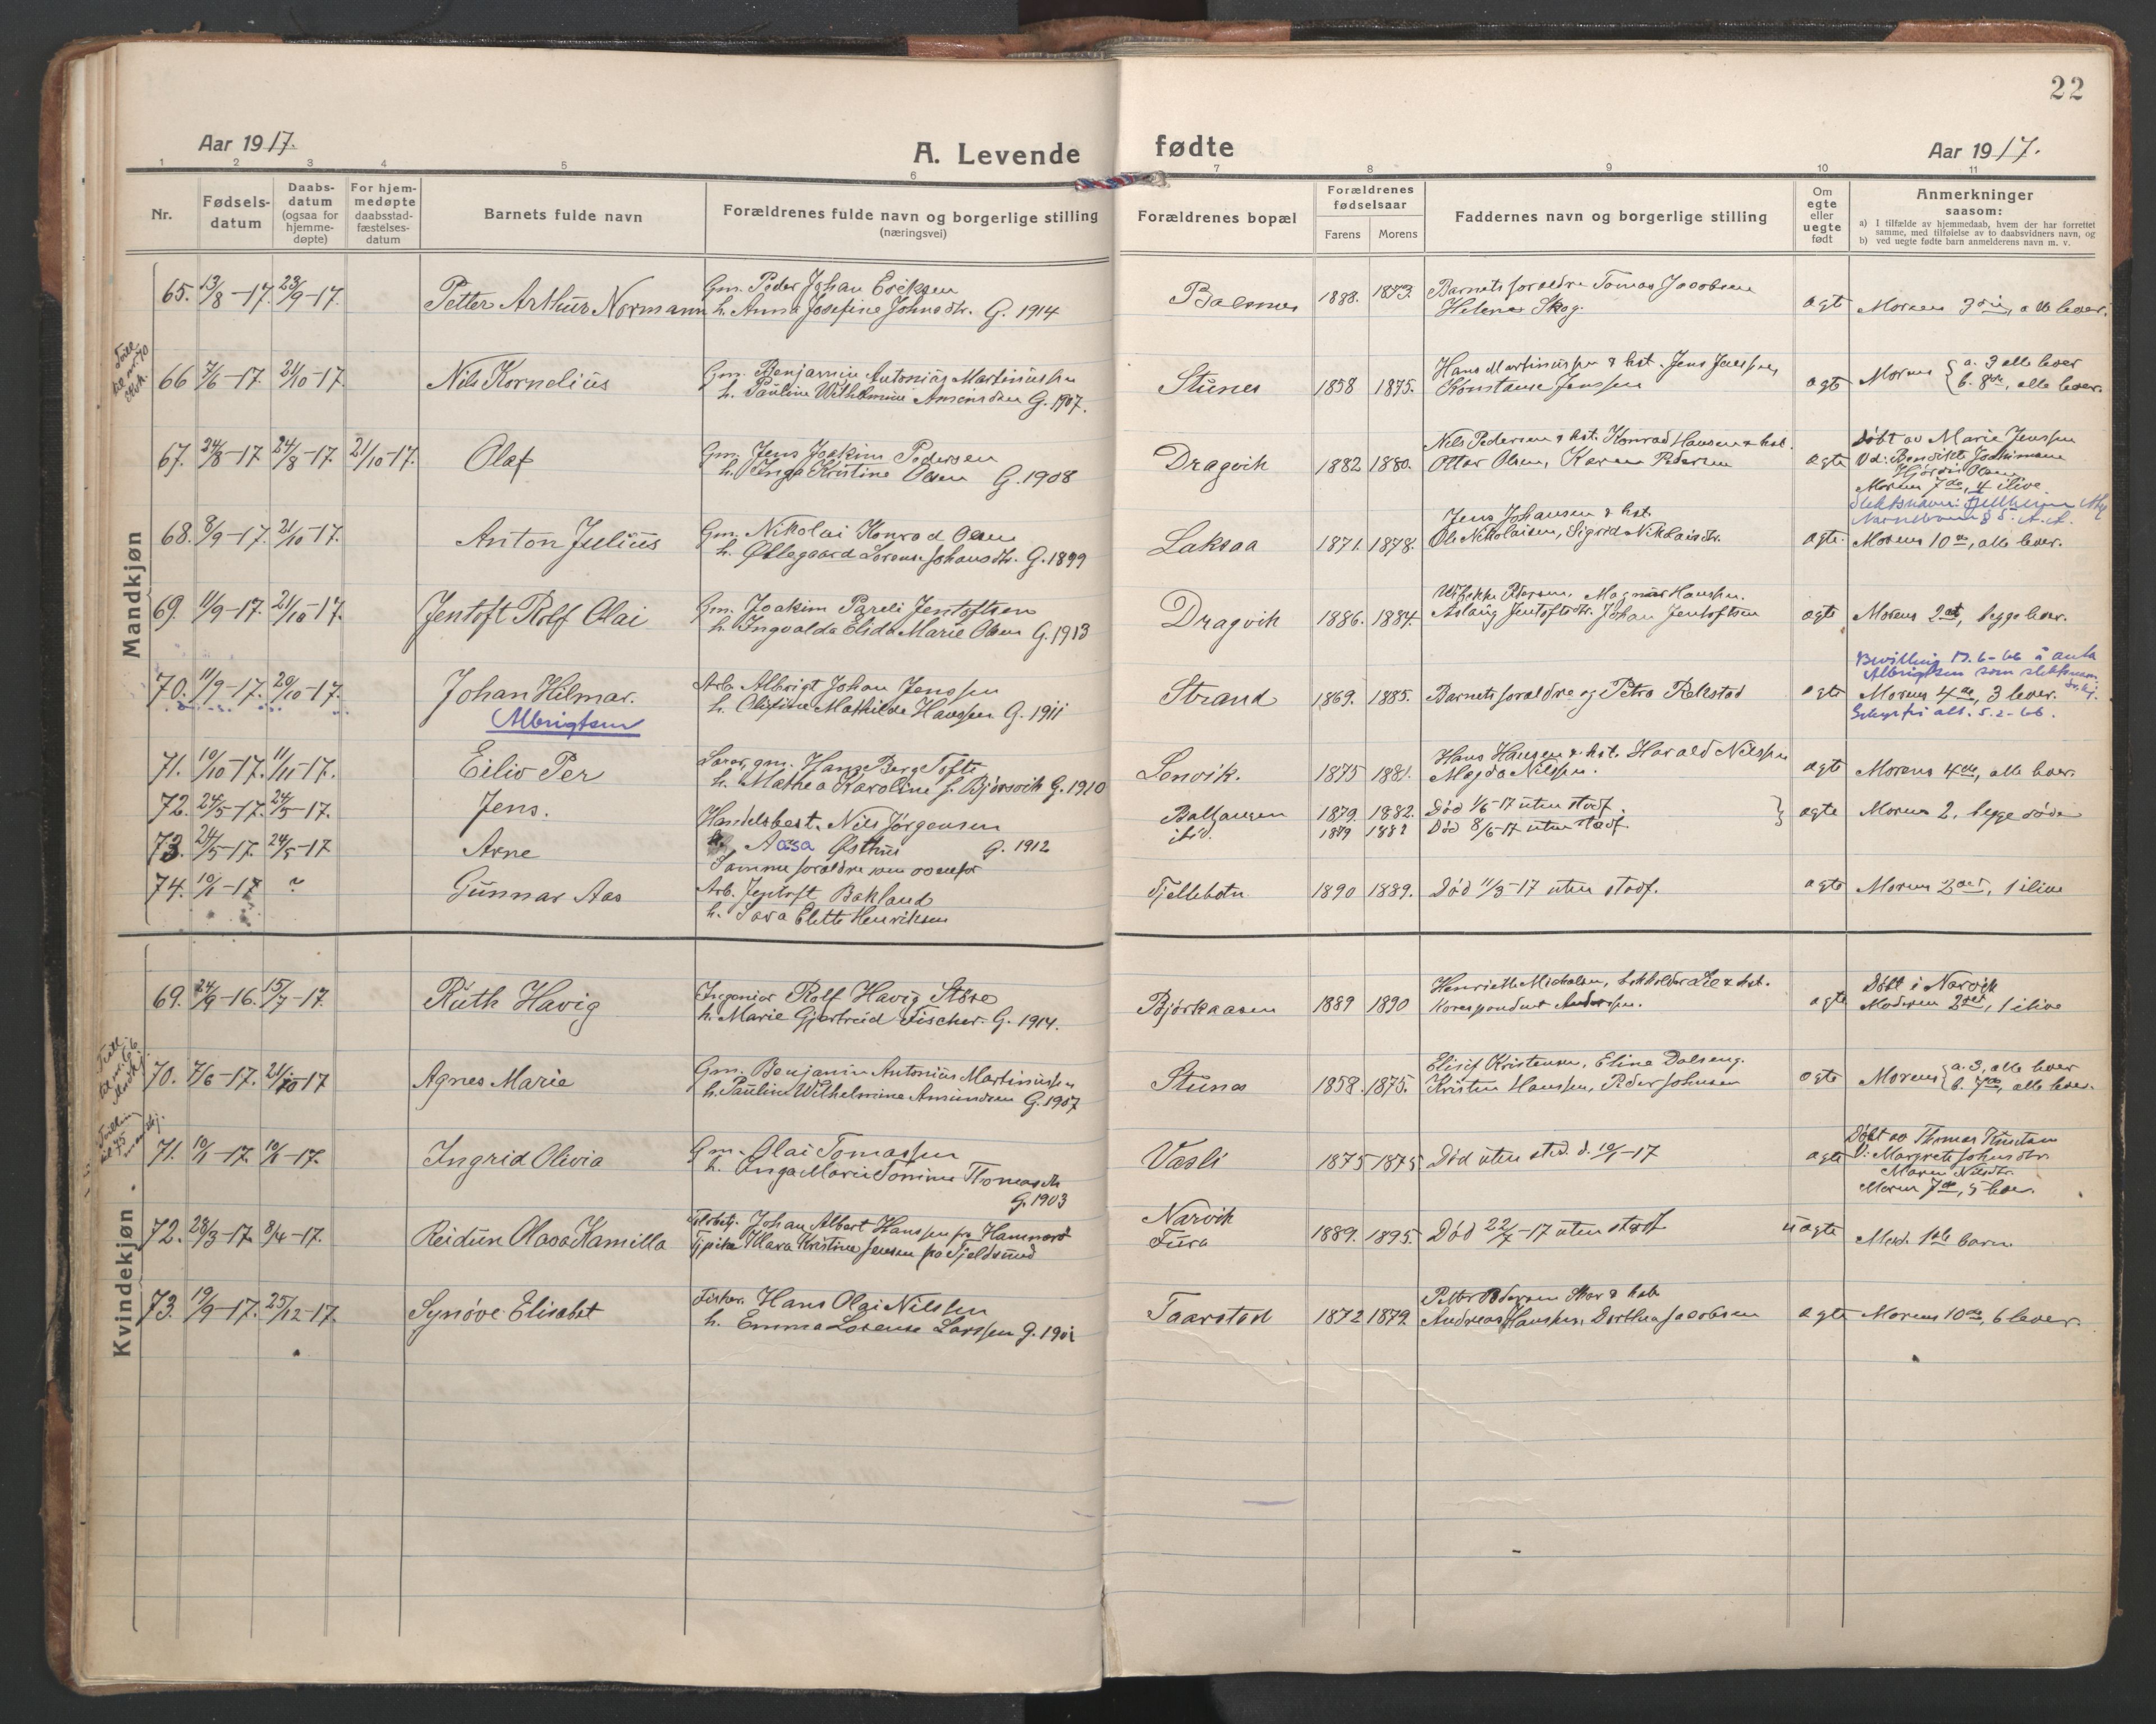 22
Aar 1917.
A. Levende fødte
Aar 1917.
1 2 3 4 5 6 7 8 9 10 11
Nr.
Fødsels-
datum
Daabs-
datum
(ogsaa for
hjemme-
døpte)
For hjem-
medøpte
daabsstad-
fæstelses-
datum
Barnets fulde navn
Forældrenes fulde navn og borgerlige stilling
(næringsvei)
Forældrenes bopæl
Forældrenes
fødselsaar
Farens Morens
Faddernes navn og borgerlige stilling
Om
egte
eller
uegte
født
Anmerkninger
saasom:
a) I tilfælde av hjemmedaab, hvem der har forrettet
samme, med tilføielse av to daabsvidners navn, og
b) ved uegte fødte barn anmelderens navn m. v.
Mandkjøn
65. 13/8-17. 23/9-17. Petter Arthur Normann
Gm. Peder Johan Eriksen
h. Anna Josefine Johnsdtr. G. 1914
1888. 1873.
Barnets foreldre Tomas Jacobsen
Helene Skog.
egte Morens 3die, alle lever.
Tvill.
til nr. 70
Kvk.
66 7/6-17. 21/10-17. Nils Kornelius
Gm. Benjamin Antonius Martinussen
h. Pauline Wilhelmine Amundsen G. 1907.
Stunes 1858 1875.
Hans Martinussen & hst. Jens Jenssen,
Konstanse Jenssen
egte Morens { a. 3 alle lever
b. 8de, alle lever.
67. 24/8-17 24/8-17. 21/10-17. Olaf
Gm. Jens Joakim Pedersen
h. Inga Kristine Olsen G. 1908
Dragvik 1882 1880.
Nils Pedersen & hst. Konrad Hansen & hst.
Ottar Olsen, Karen Pedersen
egte
Døbt av Marie Jenssen
Vd: Benedikte Joakimsen
Hjørdis Olsen
Morens 7de, 4 ilive
68. 8/9-17. 21/10-17. Anton Julius
Gm. Nikolai Konrad Olsen
h. Øllegaard Lorense Johansdtr. G. 1899
Laksaa 1871. 1878.
Jens Johansen & hst.
Ole Nikolaisen, Sigrid Nikolaisdtr.
egte. Morens 10de, alle lever.
69. 11/9-17. 21/10-17. Jentoft Rolf Olai
Gm. Joakim Pareli Jentoftsen
h. Ingvalda Elida Marie Olsen G. 1913
Dragvik 1886. 1884.
Wibekke Pedersen, Magnus Hanssen.
Aslaug Jentoftsdtr. Johan Jentoftsen
egte Morens 2det, begge lever.
70. 11/9-17. 20/10-17. Johan Hilmar.
Albrigtsen
Arb. Albrigt Johan Jenssen
h. Olefine Mathilde Hanssen G. 1911
Strand 1869. 1885. Barnets foreldre og Petra Rekstad
egte
Bevilling 17.6-66 å anta
Albrigtsen som slektsnavn
Morens 4de, 3 lever.
71. 10/10-17. 11/11-17. Eiliv Per
gm. Hans Berg Tofte
h. Mathea Karoline f. Bjørsvik G. 1910
Lenvik. 1875 1881.
Hans Hansen & hst. Harald Nilssen
Magda Nilssen.
egte Morens 4de, alle lever.
72. 24/5-17. 24/5-17. Jens.
Handelsbest. Nils Jørgensen
Ballangen 1879. 1882. Død 1/6-17 uten stadf.
} egte Morens 2, begge døde
73. 24/5-17. 24/5-17 Arne
h. Aasa Østhus G. 1912
Samme foreldre som ovenfor
ibid. 1879 1882 Død 8/6-17 uten stadf.
74. 10/1-17 ? Gunnar Aas
Arb. Jentoft Bakland
h. Sara Elette Henriksen
Fjellebotn 1890 1889. Død 11/3-17 uten stadf.
egte Morens 2det, 1 ilive
Kvindekjøn.
69. 24/9-16. 15/7-17. Ruth Havig
Ingeniør Rolf Havig Støre
h. Marie Gjertreid Fischer. G. 1914.
Bjørkaasen 1889 1890
Henriette Michelsen,
Korrespondent Anderssen.
egte
Døbt i Narvik
Moderen 2det, 1 ilive
Tvill.
til nr. 66
Mndkj.
70. 7/6-17. 21/10-17 Agnes Marie
Gm. Benjamin Antonius Martinussen
h. Pauline Wilhelmine Amundsen G. 1907
Stunes 1858. 1875.
Elisif Kristensen, Eline Dalseng.
Kristen Hanssen, Peder Johnsen
egte Morens { a. 3, alle lever
b. 7de, alle lever.
Tvilling
til 75
mandkj.
71. 10/1-17. 10/1-17. Ingrid Olivia
Gm. Olai Tomassen
h. Inga Marie Tomine Thomasdtr.
G. 1903
Vasli 1875 1875 Død uten std. d. 10/1-17
egte
Døbt av Thomas
V: Margrete Johnsdtr.
Maren Nilsdtr.
Morens 7de, 5 lever.
72. 28/3-17. 8/4-17. Reidun Olasa Kamilla
Johan Albert Hanssen fra Hammerø
Tj.pike Klara Kristine Jensen fra Tjeldsund
Narvik
Fura
1889. 1895. Død 22/7-17 uten stadf
uegte Mod. 1ste barn.
73. 19/9-17. 25/12-17. Synøve Elisabet
Fisker. Hans Olai Nilssen
h. Emma Lorense Larssen G. 1901
Taarstad 1872 1879
Petter Pedersen & hst.
Andreas Hanssen, Dorthea Jacobsen
egte Morens 10de, 6 lever.